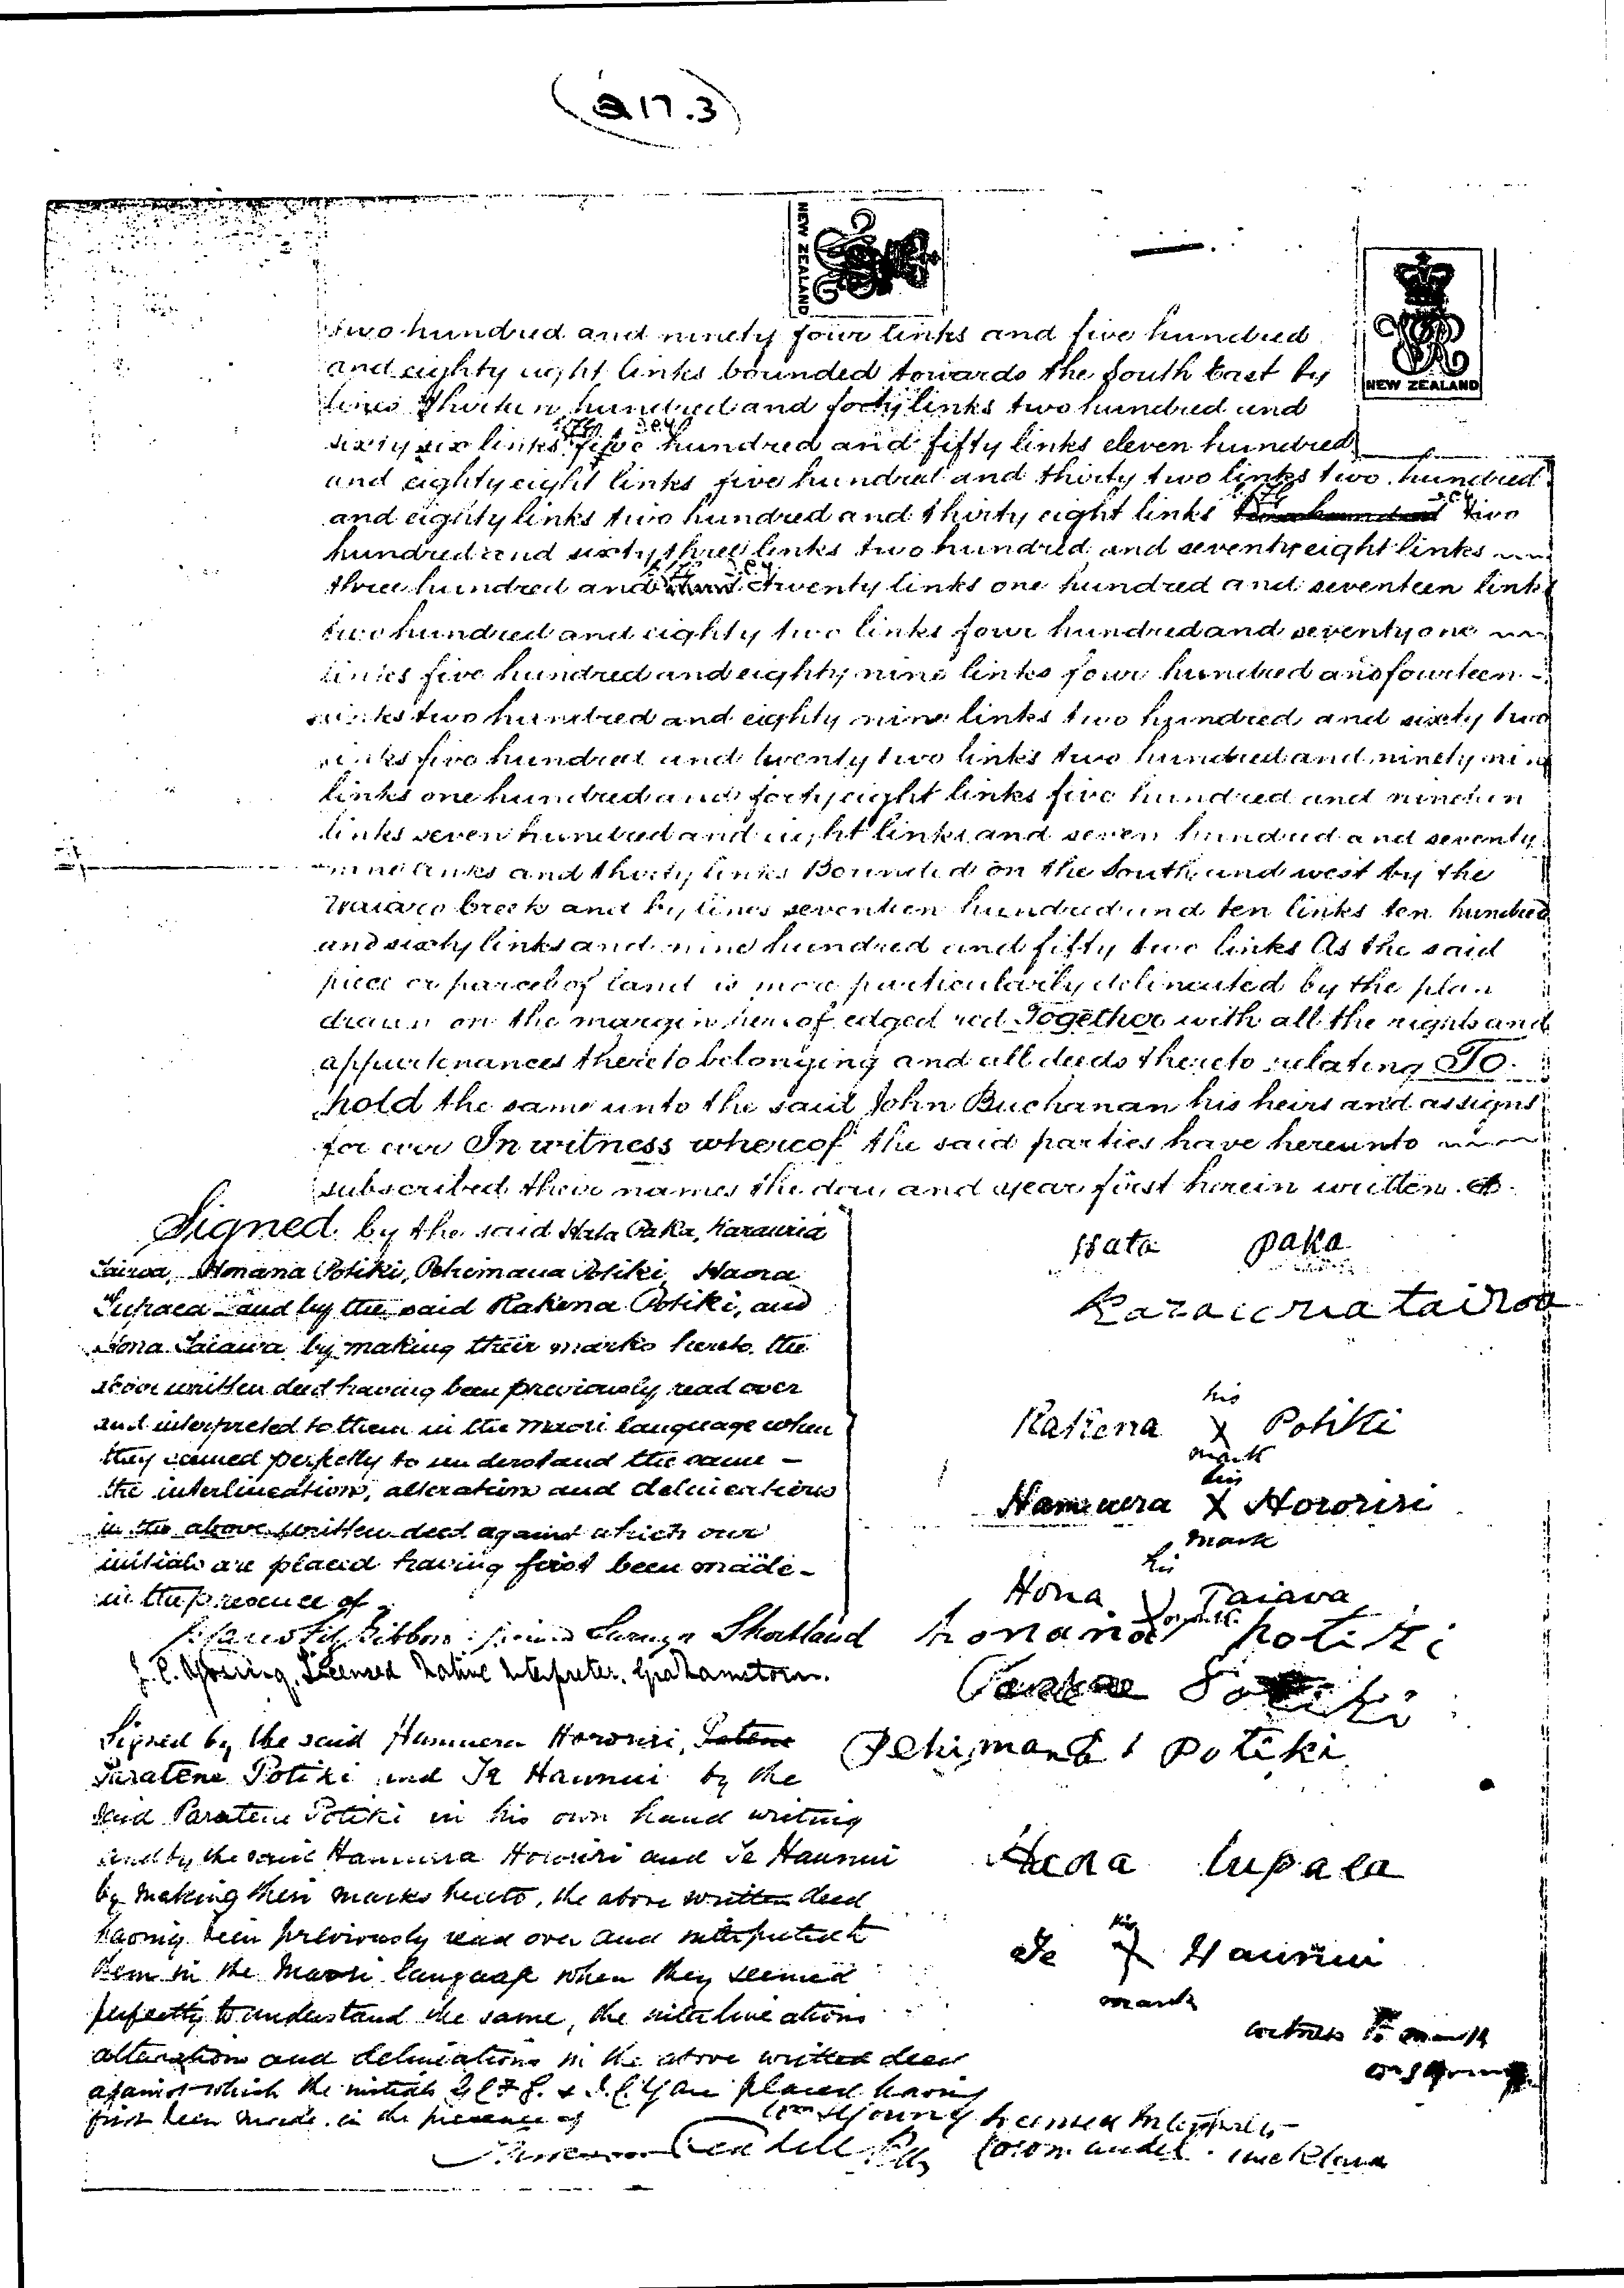 (217.3)
NEW ZEALAND
NEW ZEALAND
two hundred and ninety four links and five hundred
and eighty eight links bounded towards the South East by
lines Thirteen hundred and forty links two hundred and
sixty six links five hundred and fifty links eleven hundred
and eighty eight links five hundred and thirty two links two hundred
and eighty links two hundred and thirty eight links two
hundred and sixty three links two hundred and seventy eight links
three hundred and twenty links one hundred and seventeen links
two hundred and eighty two links four hundred and seventy one
links five hundred and eighty nine links four hundred and fourteen
links two hundred and eighty nine links two hundred and sixty two
links five hundred and twenty two links two hundred and ninety nine
links one hundred and forty eight links five hundred and nineteen
links seven hundred and eight links and seven hundred and seventy
nine links and thirty links Bounded on the South and west by the
Waiaro Creek and by lines seventeen hundred and ten links ten hundred
and sixty links and nine hundred and fifty two links As the said
piece or parcel of land is more particularly delineated by the plan
drawn on the margin hereof edged red Together with all the rights and
appurtenances thereto belonging and all deeds thereto relating To
hold the same unto the said John Buchanan his heirs and assigns
for ever In witness whereof the said parties have hereunto
subscribed their names the day and year first herein written.
Signed by the said Hata Paka, Karauria
Tairoa, Honana Potiki, Pehimana Potiki, Haora
Tupaea and by the said Rakena Potiki, and
Hona Taiawa by making their marks hereto the
above written deed having been previously read over
and interpreted to them in the Maori language when
they seemed perfectly to understand the same –
the interlineation, alteration and delineations
in the above written deed against which our
initials are placed having first been made –
in the presence of
Shortland
Licensed Native Interpreter, Grahamstown.
Hata Paka
Karauria tairoa
his
Rakena X Potiki
mark
his
Hamuera X Horoiri
mark
his
Hona Taiawa
mark
honana potiki
Potiki
Pehimana Potiki
Haora tupaea
his
Te X Haunui
mark
witness to mark
Signed by the said Hamuera Horoiri, Patene
Paratene Potiki and Te Haunui by the
said Paratene Potiki in his own hand writing
and by the said Hamuera Horoiri and Te Haunui
by making their marks hereto, the above written deed
having been previously read over and interpreted to
them in the Maori language when they seemed
perfectly to understand the same, the interlineations
alterations and delineations in the above written deed
against which the initials are placed having
first been made in the presence of
Young Licensed Interpreter
Coromandel Auckland